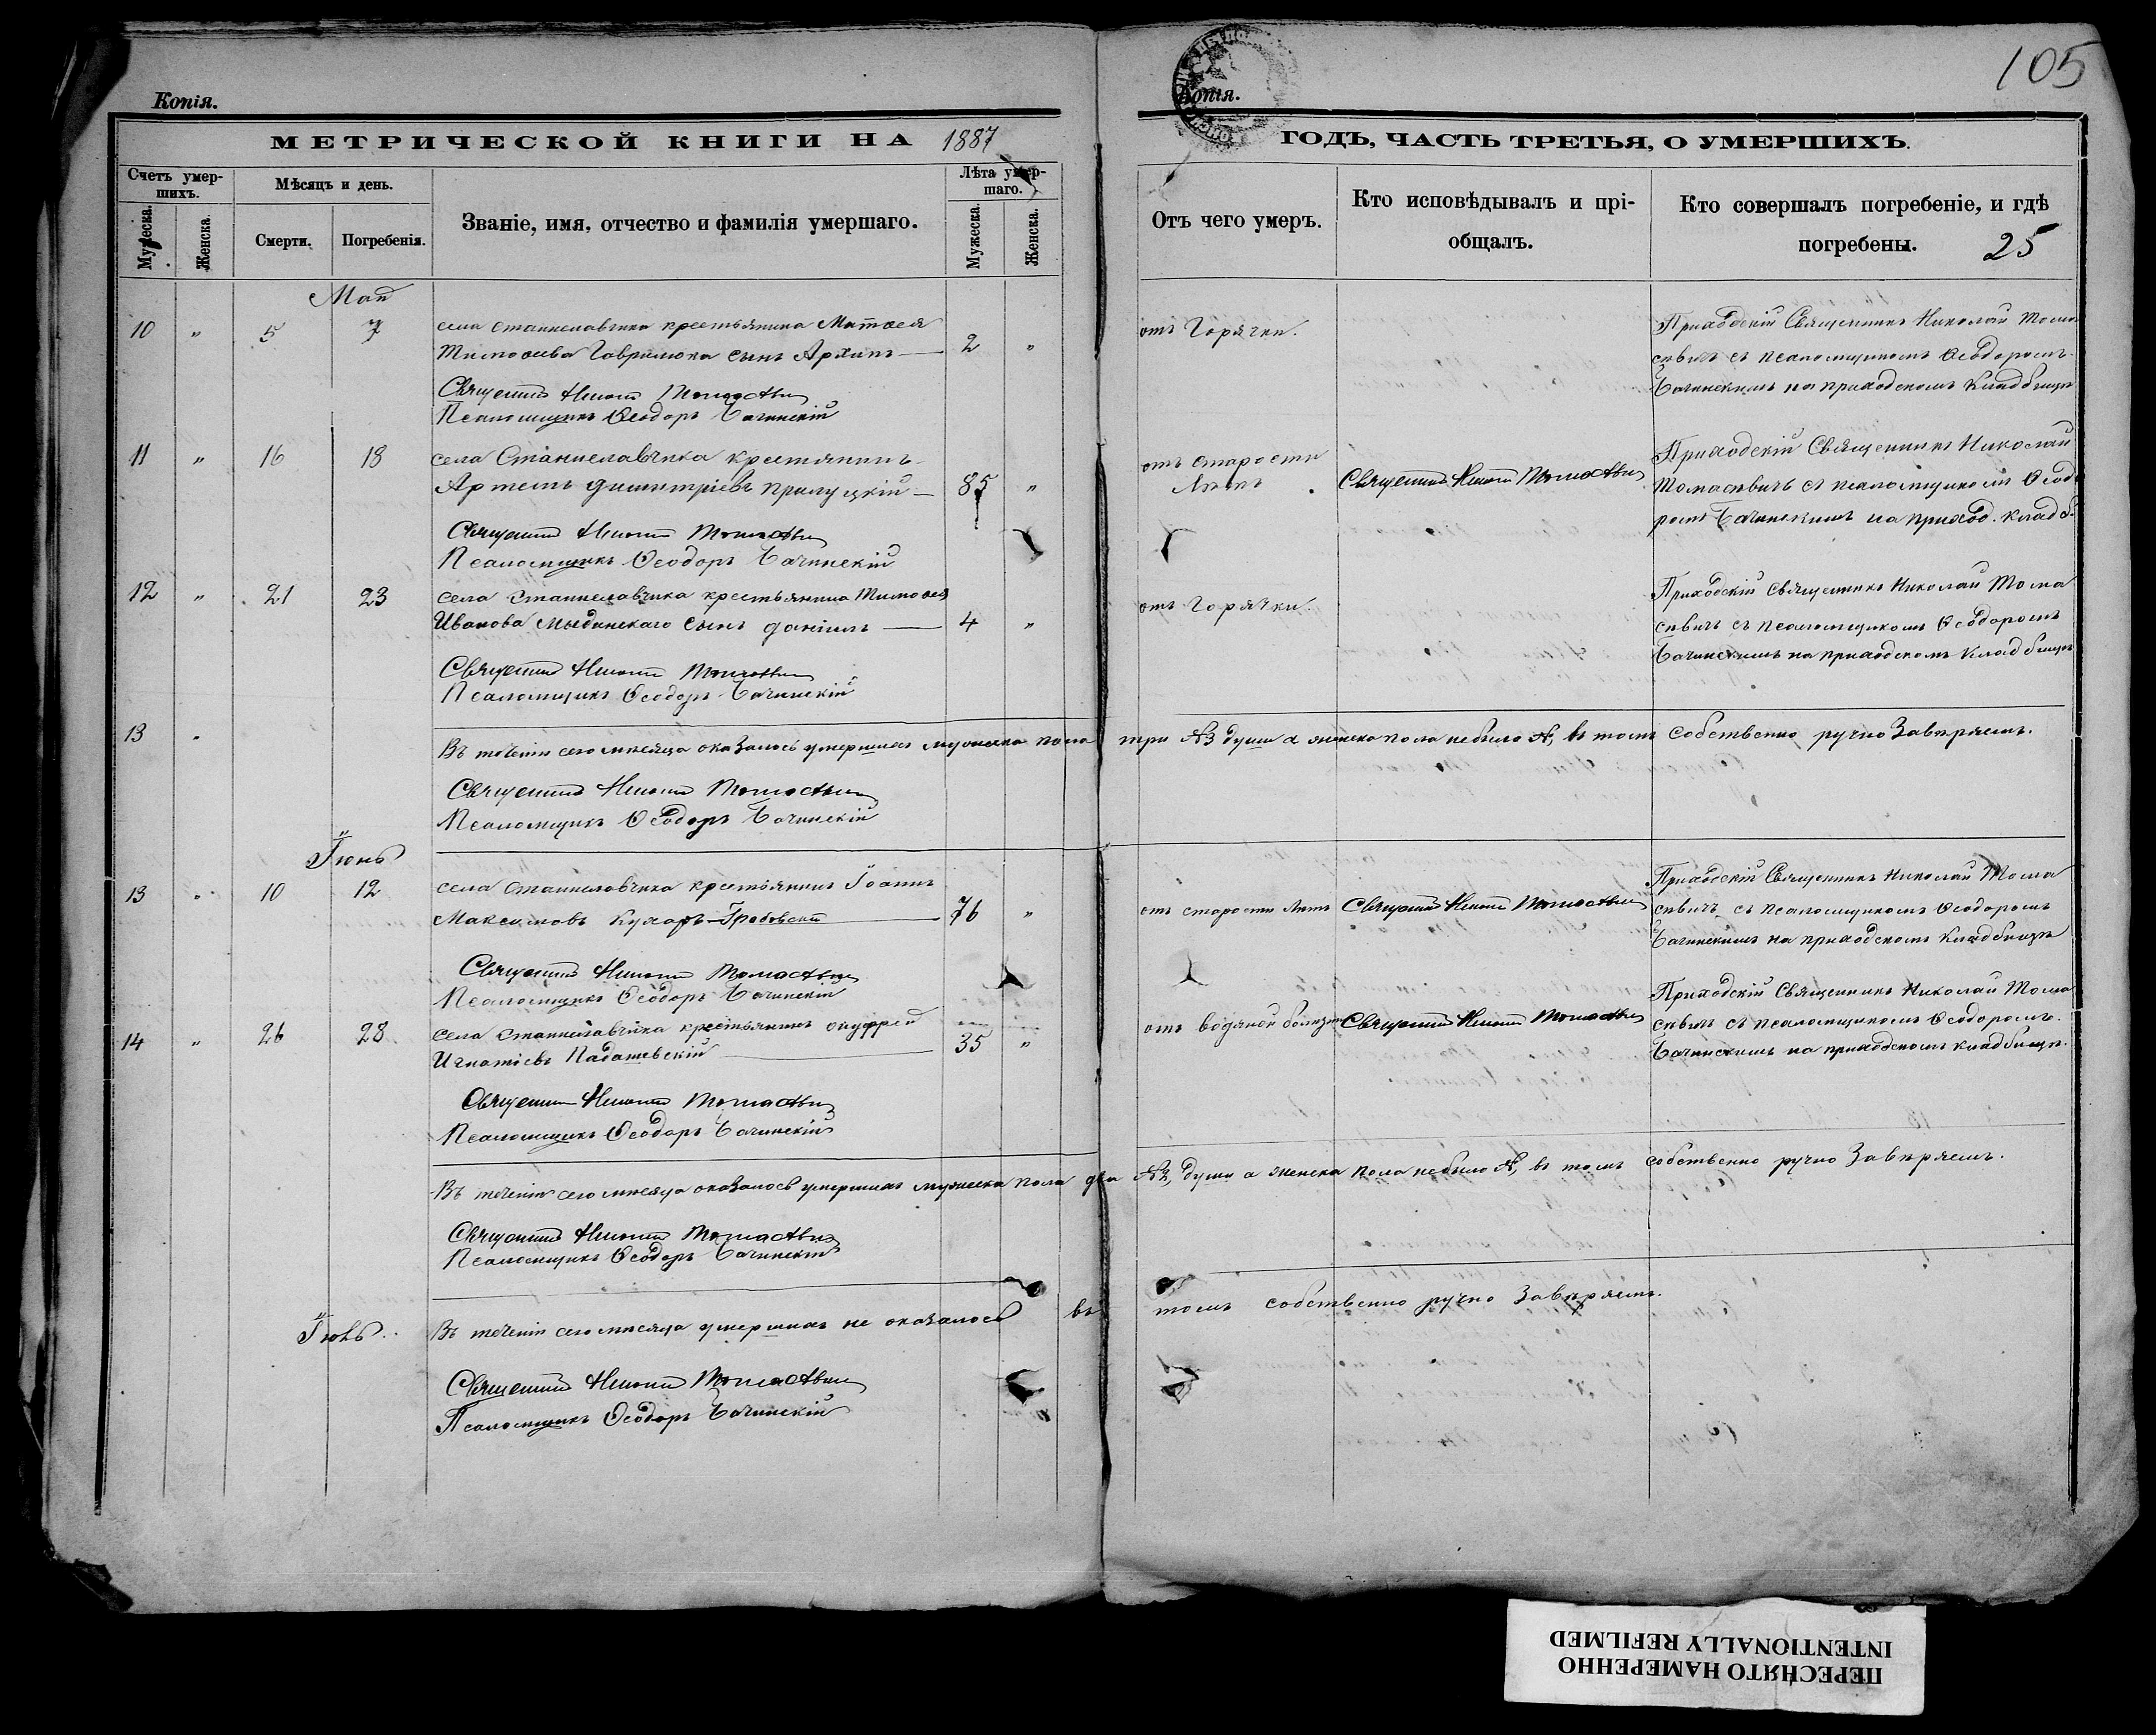 105
Копія.
Копія.
МЕТРИЧЕСКОЙ КНИГИ НА 1887
ГОДЪ, ЧАСТЬ ТРЕТЬЯ, О УМЕРШИХЪ.
Счетъ умер-
шихъ.
Мужеска.
Женска.
Мѣсяцъ и день.
Смерти.
Погребенія.
Званіе, имя, отчество и фамилія умершаго.
Лѣта умер-
шаго.
Мужеска.
Женска.
Отъ чего умеръ.
Кто исповѣдывалъ и прі-
общалъ.
Кто совершалъ погребеніе, и гдѣ
погребены.
25
Май
10 " 5 7
села Станиславчика крестьянина Матѳея
Тимоѳеева Гаврилюка сынъ Архипъ
2 "
отъ Горячки.
Приходскій Священникъ Николай Тома
севичъ съ псаломщикомъ Ѳеодоромъ
Бачинскимъ на приходскомъ кладбищѣ
Священникъ Николай Томасевичъ
Псаломщикъ Ѳеодоръ Бачинскій
11 " 16 18
села Станиславчика крестянинъ
Артемъ Димитріевъ Прилуцкій
85 "
отъ старости
лѣтъ
Священникъ Николай Томасевичъ
Приходскій Священникъ Николай
Томасевичъ съ псаломщикомъ Ѳеодо
ромъ Бачинскимъ на приход. кладб.
Священникъ Николай Томасевичъ
Псаломщикъ Ѳеодоръ Бачинскій
12 " 21 23
села Станиславчика крестьянина Тимоѳея
Иванова сынъ Даніилъ
4 "
отъ Горячки.
Приходскій Священникъ Николай Тома
севичъ съ псаломщикомъ Ѳеодоромъ
Бачинскимъ на приходскомъ кладбищѣ
Священникъ Николай Томасевичъ
Псаломщикъ Ѳеодоръ Бачинскій
13
Въ теченіи сего мѣсяца оказалось умершихъ мужеска пола три №3 души а женска пола небыло №, въ томъ собственно ручно Завѣряемъ.
Священникъ Николай Томасевичъ
Псаломщикъ Ѳеодоръ Бачинскій
Іюнь
13 " 10 12
села Станиславчика крестьянинъ Іоаннъ
Максимовъ Кухаръ-Грабовскій
76 "
отъ старости лѣтъ
Священникъ Николай Томасевичъ
Приходскій Священникъ Николай Тома
севичъ съ псаломщикомъ Ѳеодоромъ
Бачинскимъ на приходскомъ кладбищѣ
Священникъ Николай Томасевичъ
Псаломщикъ Ѳеодоръ Бачинскій
14 " 26 28
села Станиславчика крестьянинъ Онуфрей
Игнатіевъ Падашевскій
35 "
отъ водяной болезни
Священникъ Николай Томасевичъ
Приходскій Священникъ Николай Тома
севичъ съ псаломщикомъ Ѳеодоромъ
Бачинскимъ на приходскомъ кладбищѣ.
Священникъ Николай Томасевичъ
Псаломщикъ Ѳеодоръ Бачинскій
Въ теченіи сего мѣсяца оказалось умершихъ мужеска пола два №2, души а женска пола небыло №, въ томъ собственно ручно Завѣряемъ.
Священникъ Николай Томасевичъ
Псаломщикъ Ѳеодоръ Бачинскій
Іюль
Въ теченіи сего мѣсяца умершихъ не оказалось въ томъ собственно ручно Завѣряемъ.
Священникъ Николай Томасевичъ
Псаломщикъ Ѳеодоръ Бачинскій
ПЕРЕСНЯТО НАМЕРЕННО
INTENTIONALLY REFILMED